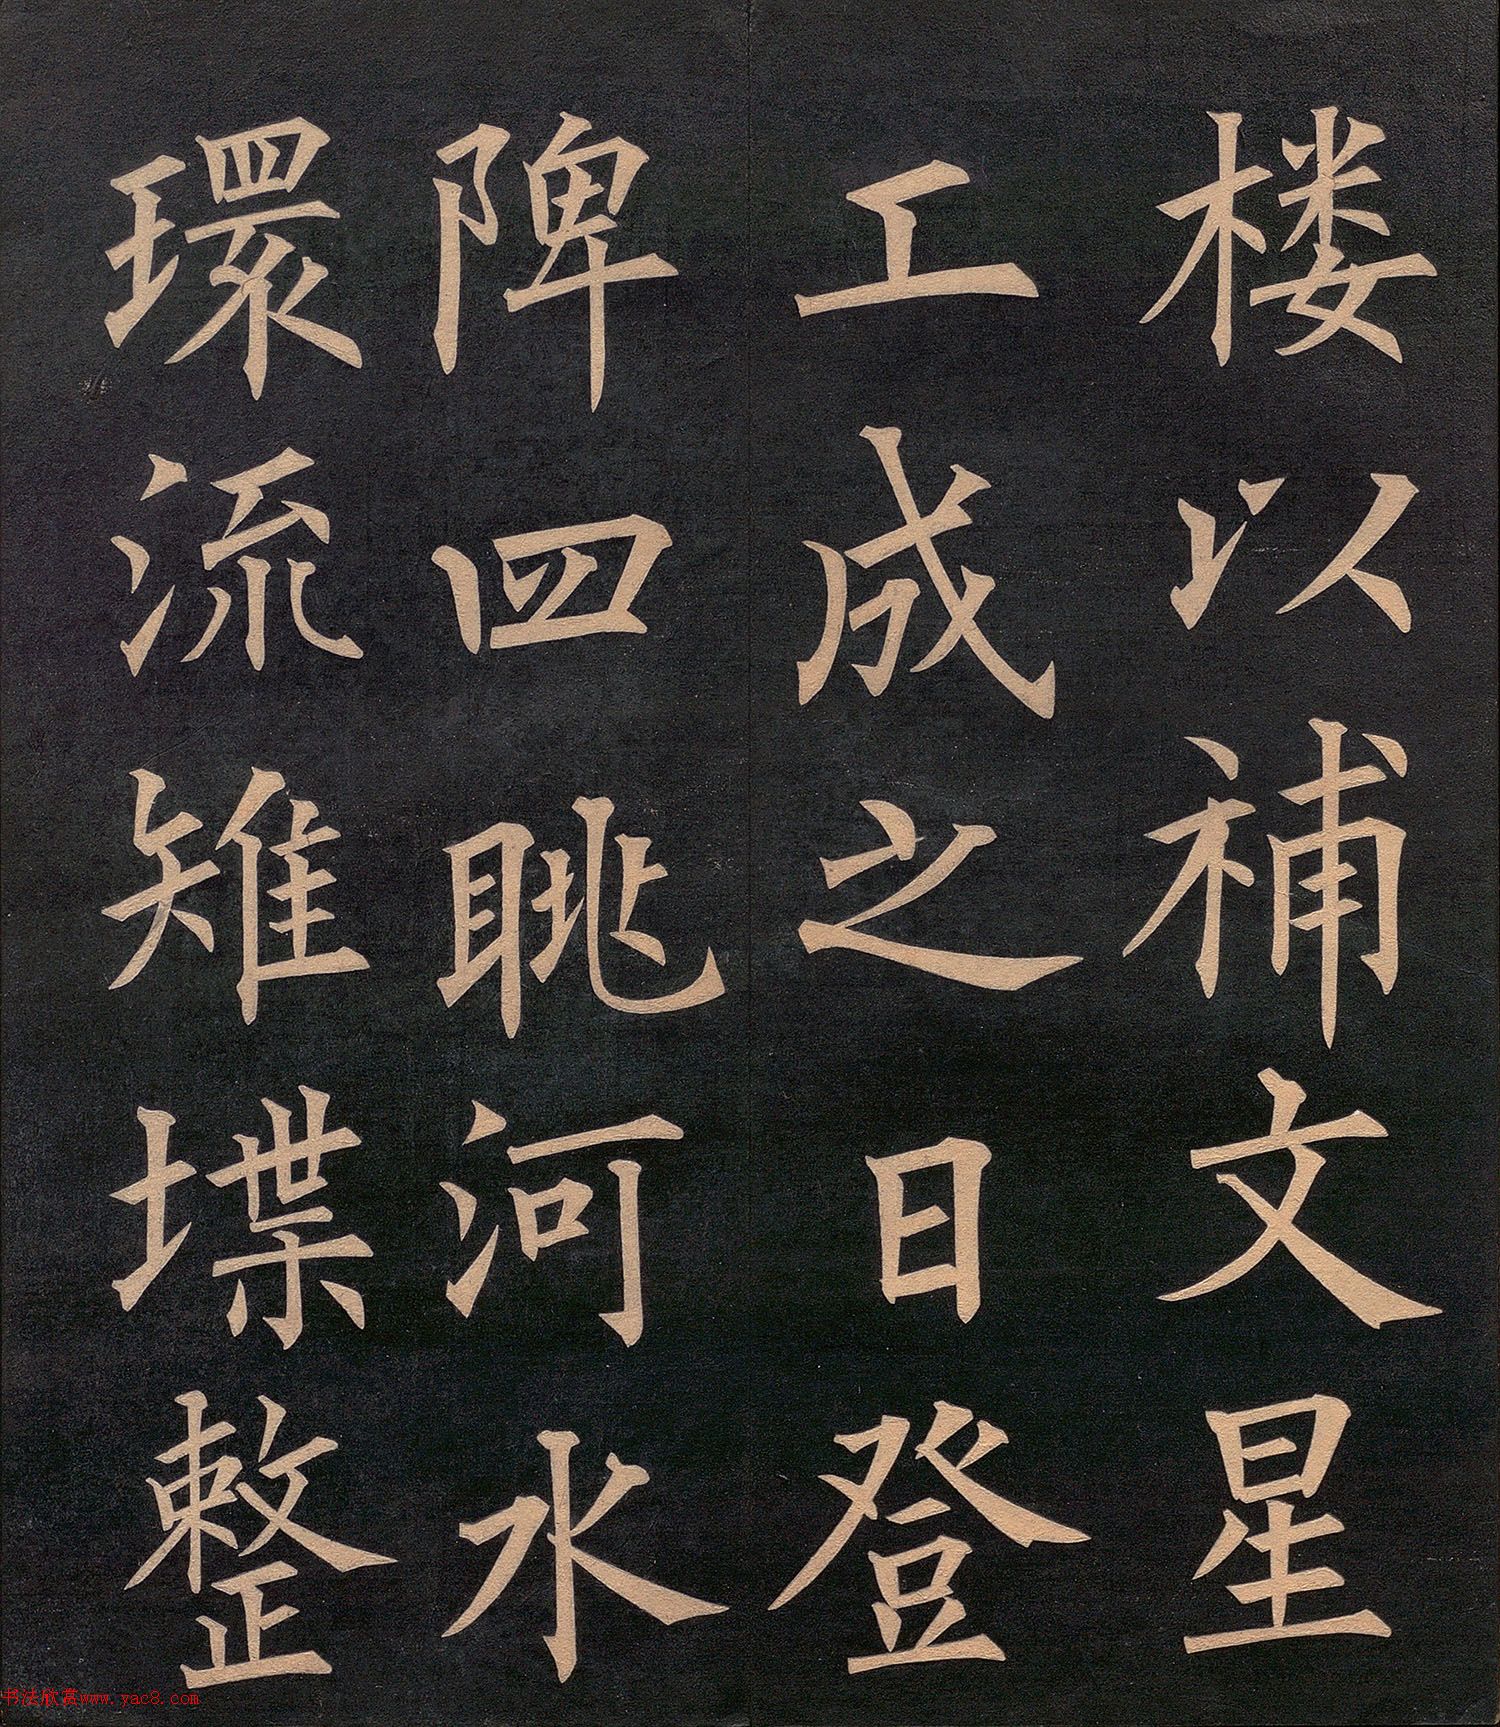 楼以補文星
工成之日登
陴四眺河水
環流雉堞整
书法欣赏www.yac8.com